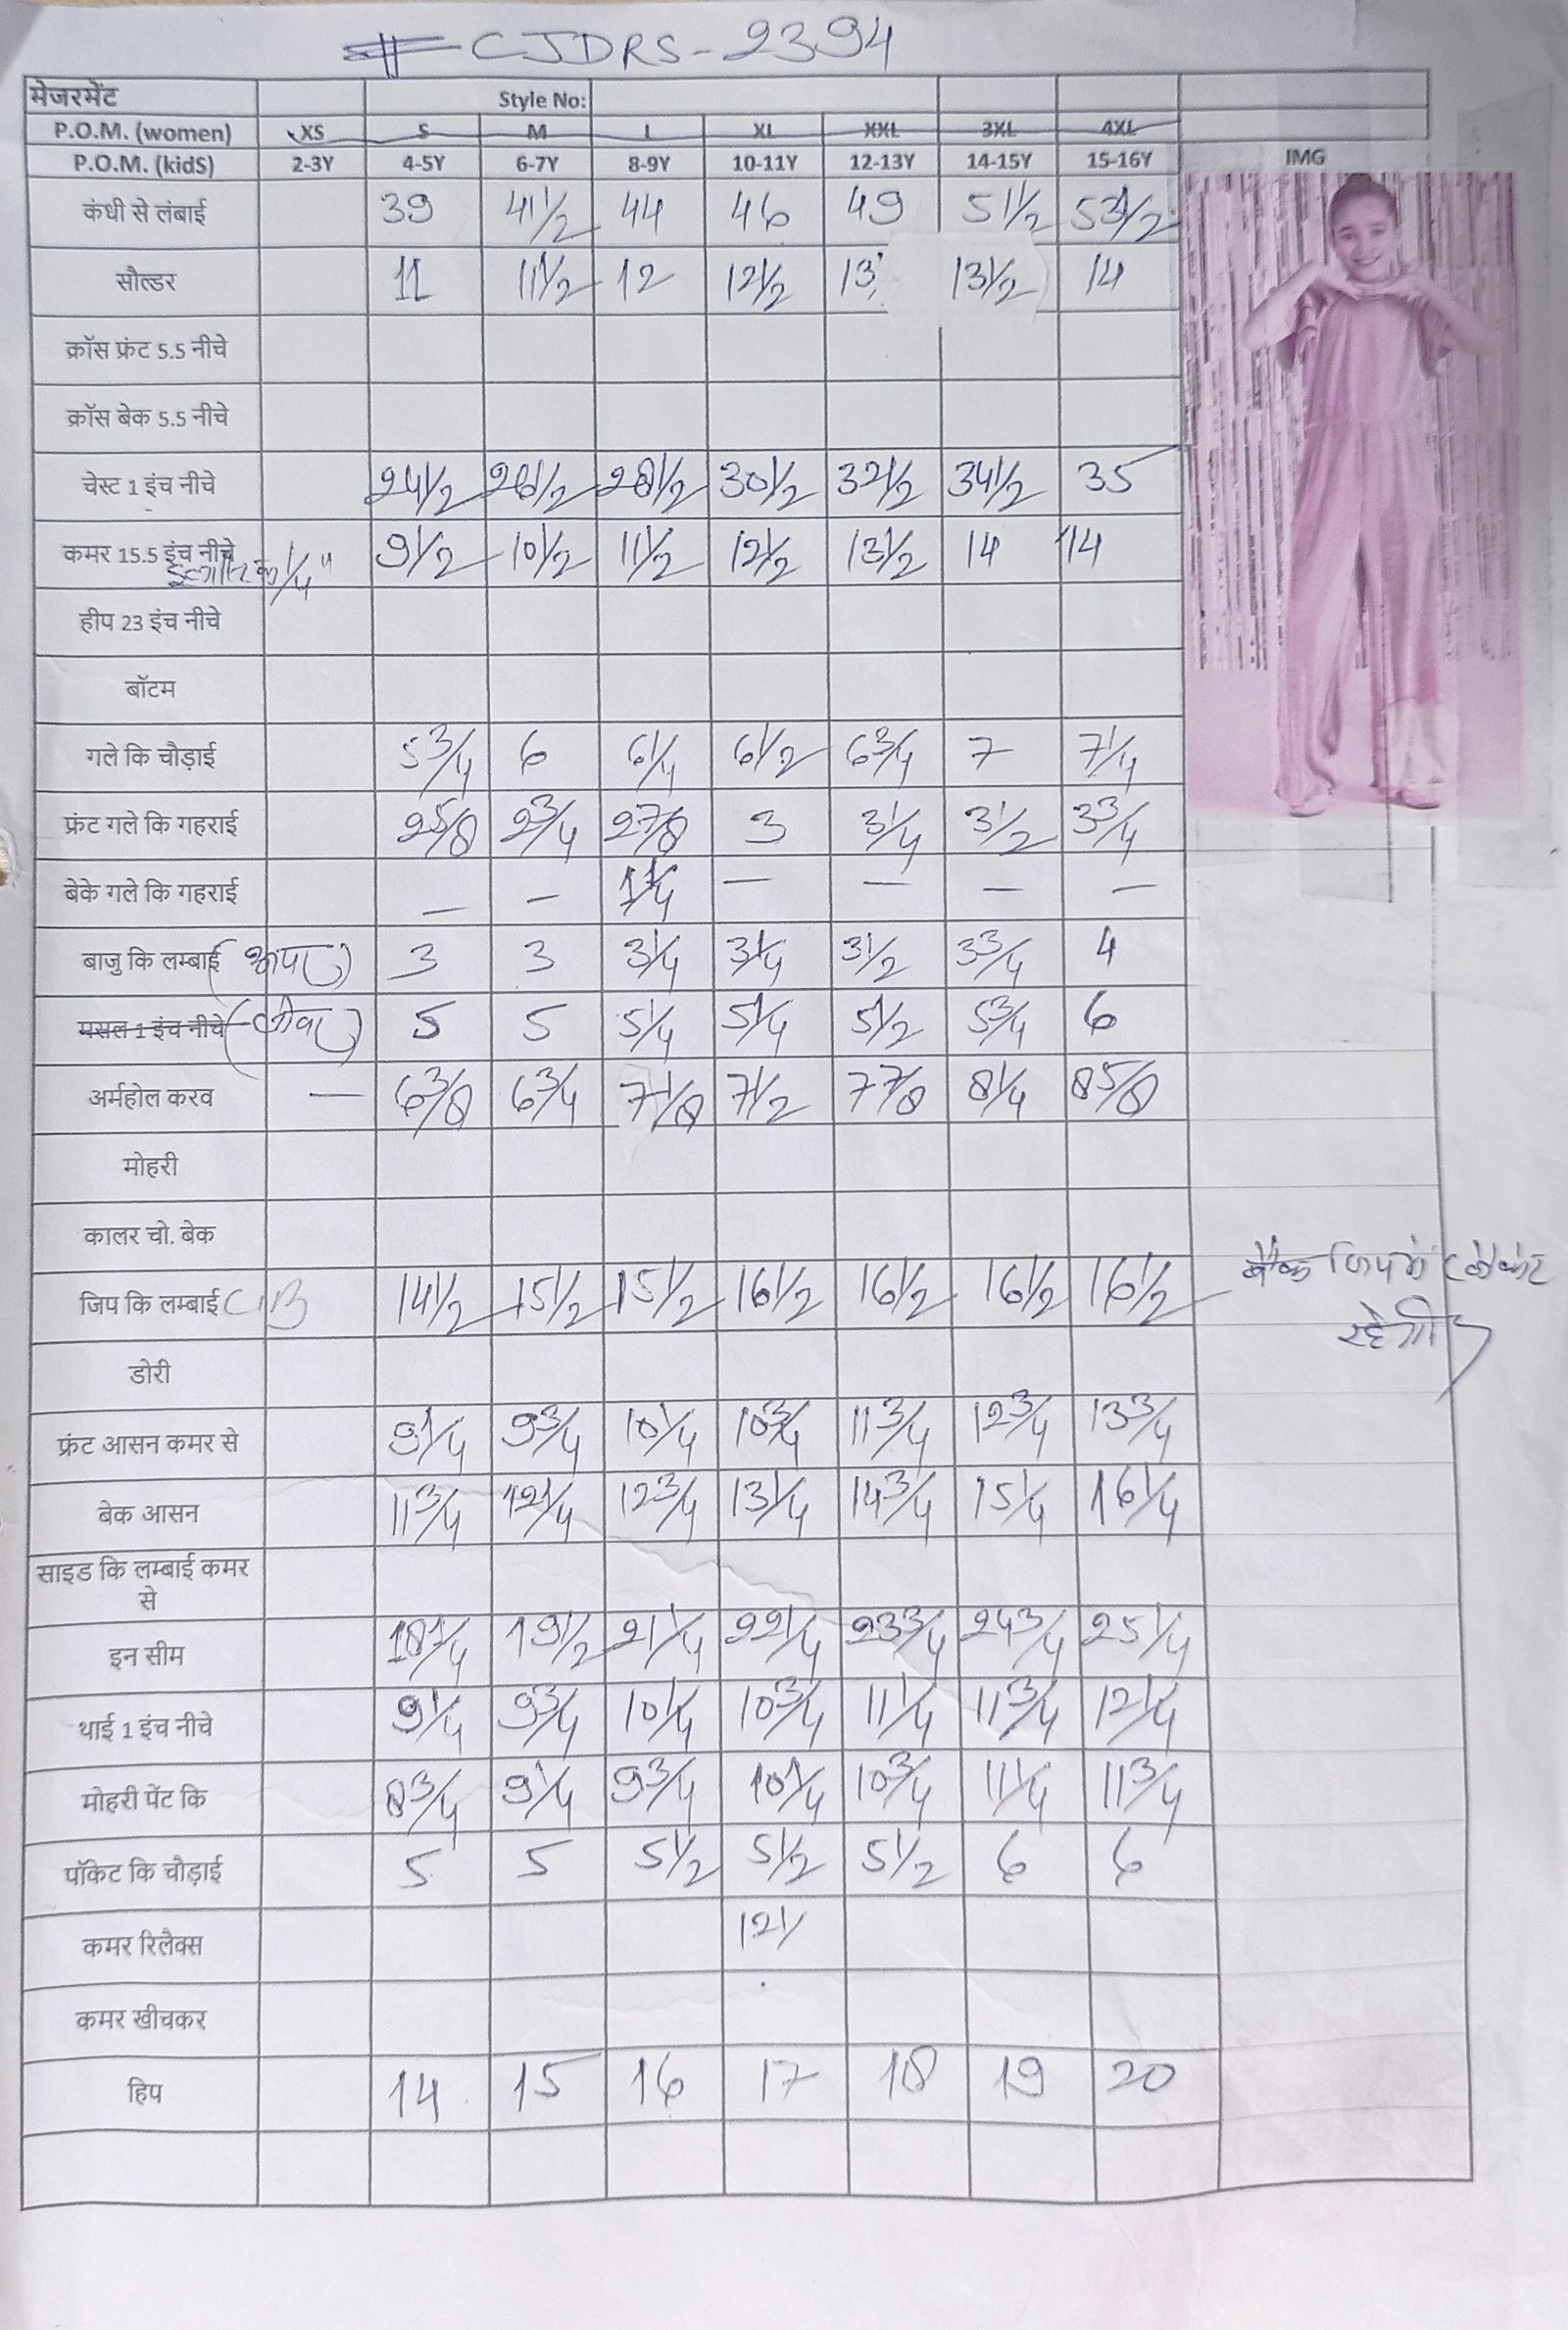 # CJDRS-2394
मेजरमेंट Style No:
P.O.M. (women) XS S M L XL XXL 3XL 4XL
P.O.M. (kidS) 2-3Y 4-5Y 6-7Y 8-9Y 10-11Y 12-13Y 14-15Y 15-16Y IMG
कंधी से लंबाई 39 41 1/2 44 46 49 51 1/2 53 1/2
सौल्डर 11 11 1/2 12 12 1/2 13 13 1/2 14
क्रॉस फ्रंट 5.5 नीचे
क्रॉस बेक 5.5 नीचे
चेस्ट 1 इंच नीचे 24 1/2 26 1/2 28 1/2 30 1/2 32 1/2 34 1/2 35
कमर 15.5 इंच नीचे 9 1/2 10 1/2 11 1/2 12 1/2 13 1/2 14 14
1/4"
हीप 23 इंच नीचे
बॉटम
गले कि चौड़ाई 5 3/4 6 6 1/4 6 1/2 6 3/4 7 7 1/4
फ्रंट गले कि गहराई 2 5/8 2 3/4 2 7/8 3 3 1/4 3 1/2 3 3/4
बेके गले कि गहराई — — 1 1/4 — — — —
बाजु कि लम्बाई 3 3 3 1/4 3 1/4 3 1/2 3 3/4 4
मसल 1 इंच नीचे 5 5 5 1/4 5 1/4 5 1/2 5 3/4 6
अर्महोल करव — 6 3/8 6 3/4 7 1/8 7 1/2 7 7/8 8 1/4 8 5/8
मोहरी
कालर चो. बेक
जिप कि लम्बाई CB 14 1/2 15 1/2 15 1/2 16 1/2 16 1/2 16 1/2 16 1/2 बैक जिप
रहेगी
डोरी
फ्रंट आसन कमर से 9 1/4 9 3/4 10 1/4 10 3/4 11 3/4 12 3/4 13 3/4
बेक आसन 11 3/4 12 1/4 12 3/4 13 1/4 14 3/4 15 1/4 16 1/4
साइड कि लम्बाई कमर
से
इन सीम 18 1/4 19 1/2 21 1/4 22 1/4 23 3/4 24 3/4 25 1/4
थाई 1 इंच नीचे 9 1/4 9 3/4 10 1/4 10 3/4 11 1/4 11 3/4 12 1/4
मोहरी पेंट कि 8 3/4 9 1/4 9 3/4 10 1/4 10 3/4 11 1/4 11 3/4
पॉकेट कि चौड़ाई 5 5 5 1/2 5 1/2 5 1/2 6 6
कमर रिलैक्स 12 1/
कमर खीचकर
हिप 14 15 16 17 18 19 20